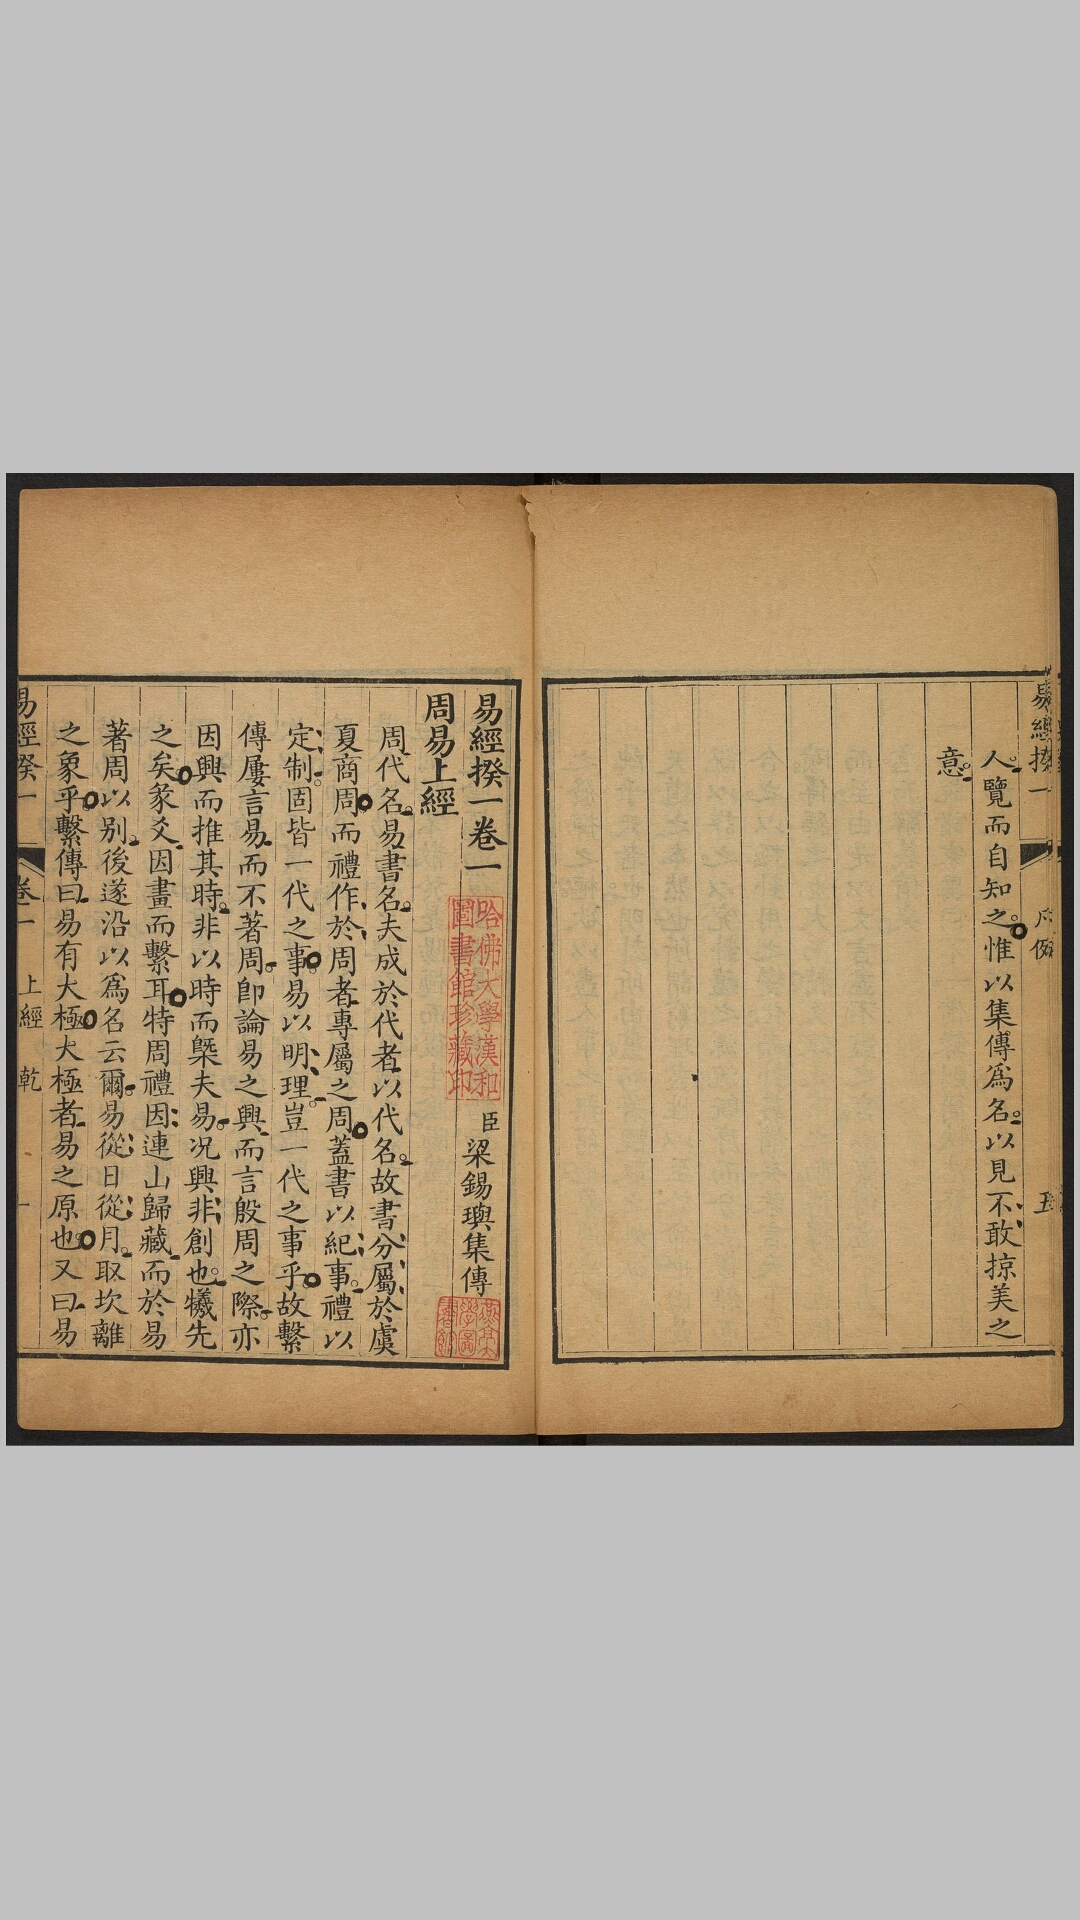 易經揆一
凡例
五
人覽而自知之惟以集傳爲名以見不敢掠美之
意
易經揆一卷一
臣梁錫璵集傳
哈佛大學漢和
圖書館珍藏印
周易上經
周代名易書名夫成於代者以代名故書分屬於虞
夏商周而禮作於周者專屬之周蓋書以紀事禮以
定制固皆一代之事易以明理豈一代之事乎故繫
傳屢言易而不著周卽論易之興而言殷周之際亦
因興而推其時非以時而槩夫易况興非創也犧先
之矣彖爻因畫而繫耳特周禮因連山歸藏而於易
著周以别後遂沿以爲名云爾易從日從月取坎離
之象乎繫傳曰易有大極大極者易之原也又曰易
易經揆一
卷一
上經 乾
一